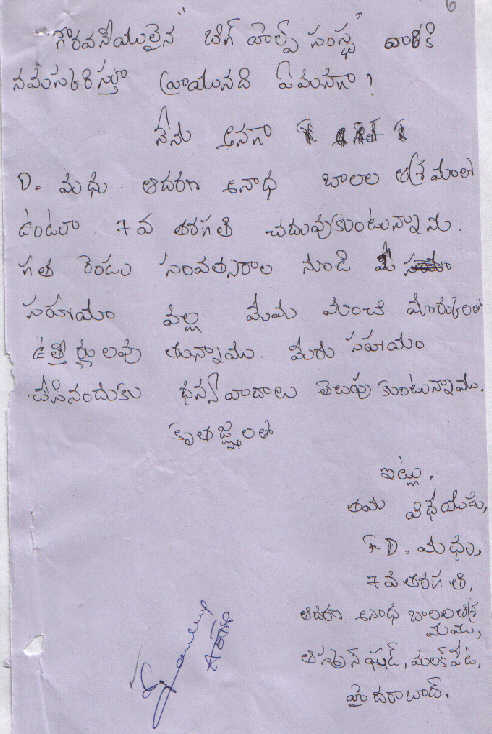 6
గౌరవనీయులైన "బిగ్ హెల్ప్ సంస్థ" వారికి
నమస్కరిస్తూ వ్రాయునది ఏమనగా!
నేను అనగా
D. మధు ఆదరణ అనాధ బాలల ఆశ్రమంలో
ఉంటూ 7వ తరగతి చదువుకుంటున్నాను.
గత రెండు సంవత్సరాల నుండి మీ
సహాయం వల్ల మేము మంచి మార్కులతో
ఉత్తీర్ణులవు తున్నాము. మీరు సహాయం
చేసినందుకు ధన్యవాదాలు తెలుపు కుంటున్నాము.
కృతజ్ఞతలతో
ఇట్లు,
తమ విధేయుడు,
D. మధు,
7వ తరగతి,
ఆదరణ అనాధ బాలలఆశ్ర
మము,
ఆస్మాన్ ఘడ్, మలక్ పేట,
హైదరాబాద్.